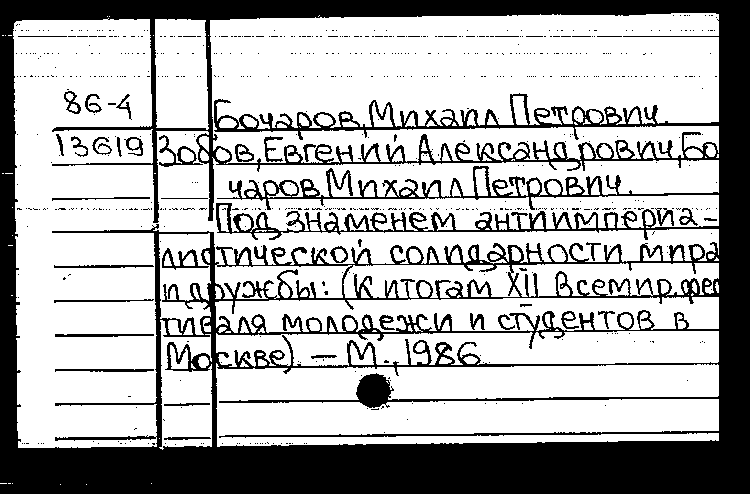 86-4 Бочаров, Михаил Петрович.
13619 Зобов, Евгений Александрович, Бо
чаров, Михаил Петрович.
Под знаменем антиимпериа-
листической солидарности, мира
и дружбы: (К итогам XII Всемир. фес
тиваля молодежи и студентов в
Москве). — М., 1986